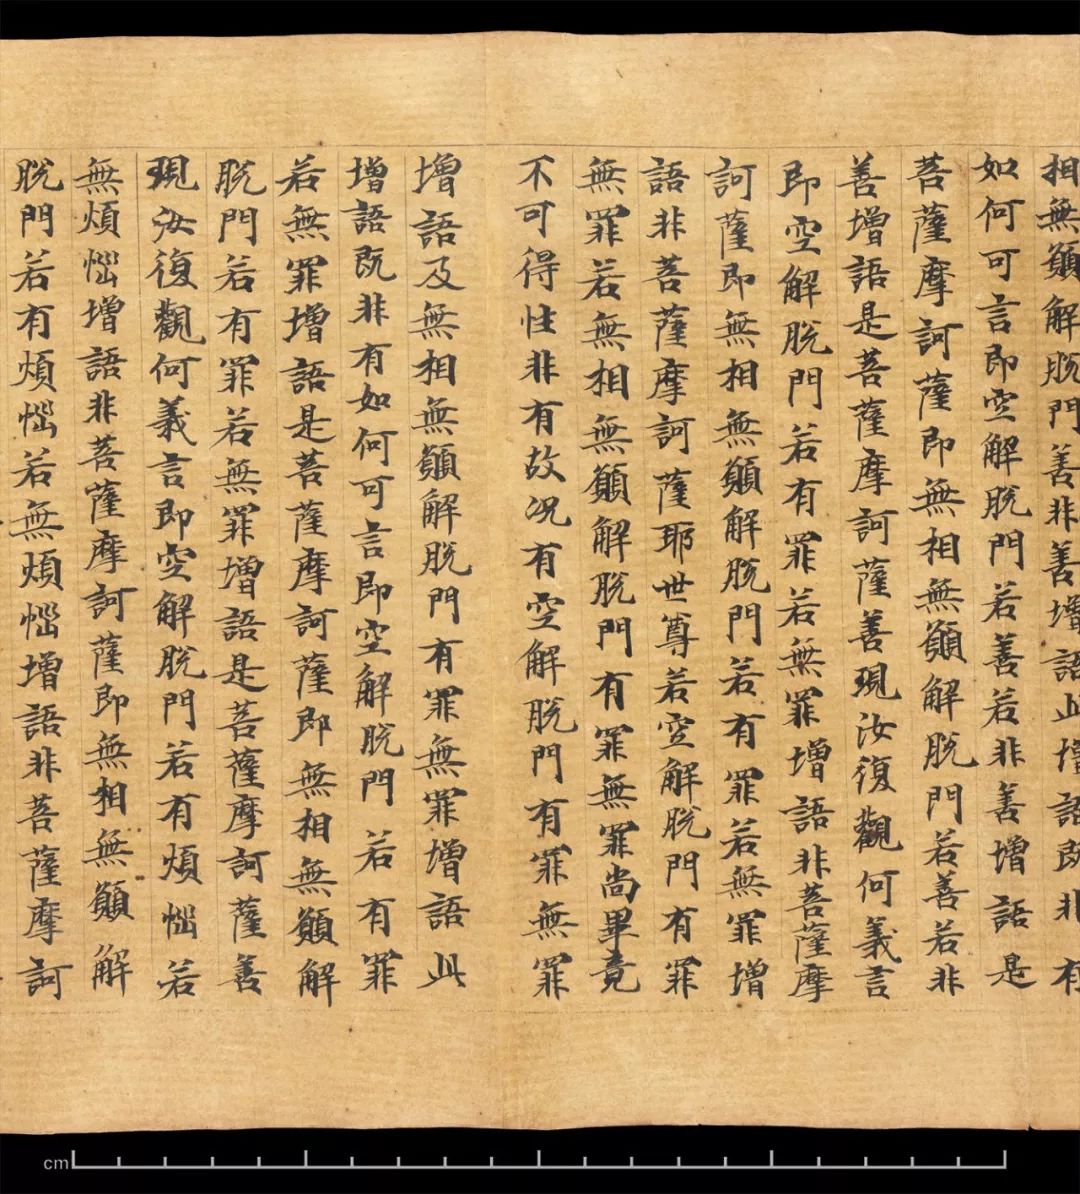 相無願解脫門善非善增語此增語既非有
如何可言即空解脫門若善若非善增語是
菩薩摩訶薩即無相無願解脫門若善若非
善增語是菩薩摩訶薩善現汝復觀何義言
即空解脫門若有罪若無罪增語非菩薩摩
訶薩即無相無願解脫門若有罪若無罪增
語非菩薩摩訶薩耶世尊若空解脫門有罪
無罪若無相無願解脫門有罪無罪尚畢竟
不可得性非有故况有空解脫門有罪無罪
增語及無相無願解脫門有罪無罪增語此
增語既非有如何可言即空解脫門若有罪
若無罪增語是菩薩摩訶薩即無相無願解
脫門若有罪若無罪增語是菩薩摩訶薩善
現汝復觀何義言即空解脫門若有煩惱若
無煩惱增語非菩薩摩訶薩即無相無願解
脫門若有煩惱若無煩惱增語非菩薩摩訶
cm